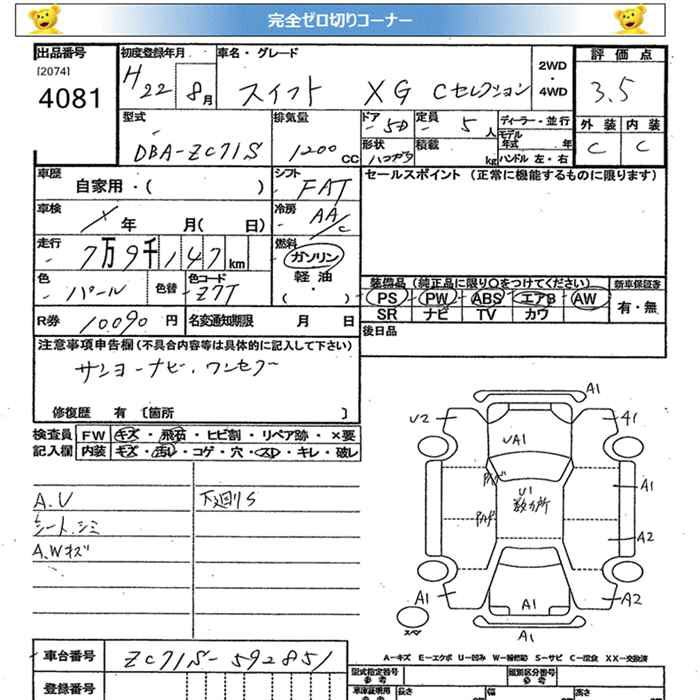 完全ゼロ切りコーナー
出品番号 初度登録年月 車名・グレード 2WD・4WD 評価点
[2074]
4081 H22 8月 スイフト XG Cセレクション 3.5
型式 排気量 ドア 定員 ディーラー・並行 外装 内装
DBA-ZC71S 1200 CC 5D 5人 モデル年式 年 C C
形状 積載 kg ハンドル 左・右
車歴 自家用・( ) シフト FAT セールスポイント (正常に機能するものに限ります)
車検 年 月( 日) 冷房 AA/C
走行 7万9千147km 燃料 ガソリン・軽油・( )
色 パール 色替 色コード Z7T
装備品 (純正品に限り○をつけてください) 新車保証書
PS PW ABS エアB AW 有・無
SR ナビ TV カワ
R券 10090円 名変通知期限 月 日 後日品
注意事項申告欄 (不具合内容等は具体的に記入して下さい)
サンヨーナビ、ワンセグ
修復歴 有 [箇所 ]
検査員 FW キズ・飛石・ヒビ割・リペア跡・×要
記入欄 内装 キズ・汚レ・コゲ・穴・スレ・キレ・破レ
A.U 下廻りS
シート、シミ
A.Wキズ
A1
U2
UA1
A1
U1
数カ所
A2
A1
A1
A2
A1
スペア
A-キズ E-エクボ U-凹み W-補修跡 S-サビ C-腐食 XX-交換済
車台番号 ZC71S-592851
型式指定番号 参考 類別区分番号 参考
登録番号 長さ 幅 高さ